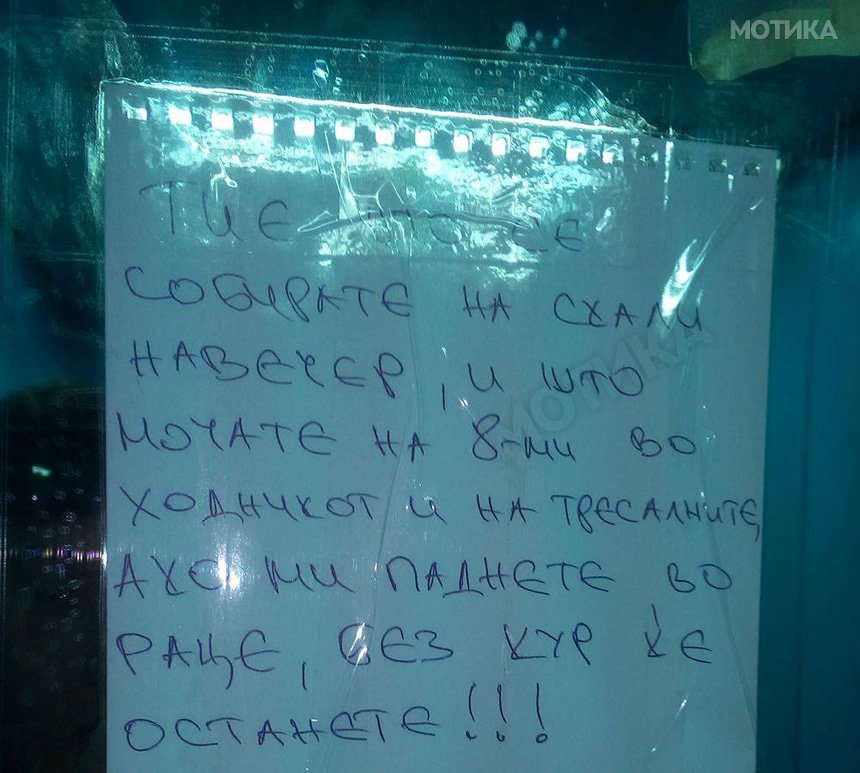 МОТИКА
ТИЕ ШТО СЕ
СОБИРАТЕ НА СКАЛИ
НАВЕЧЕР, И ШТО
МОЧАТЕ НА 8-МИ ВО
ХОДНИКОТ И НА ТРЕСАЛНИТЕ,
АКО МИ ПАДНЕТЕ ВО
РАЦЕ, БЕЗ КУР ЌЕ
ОСТАНЕТЕ!!!
МОТИКА